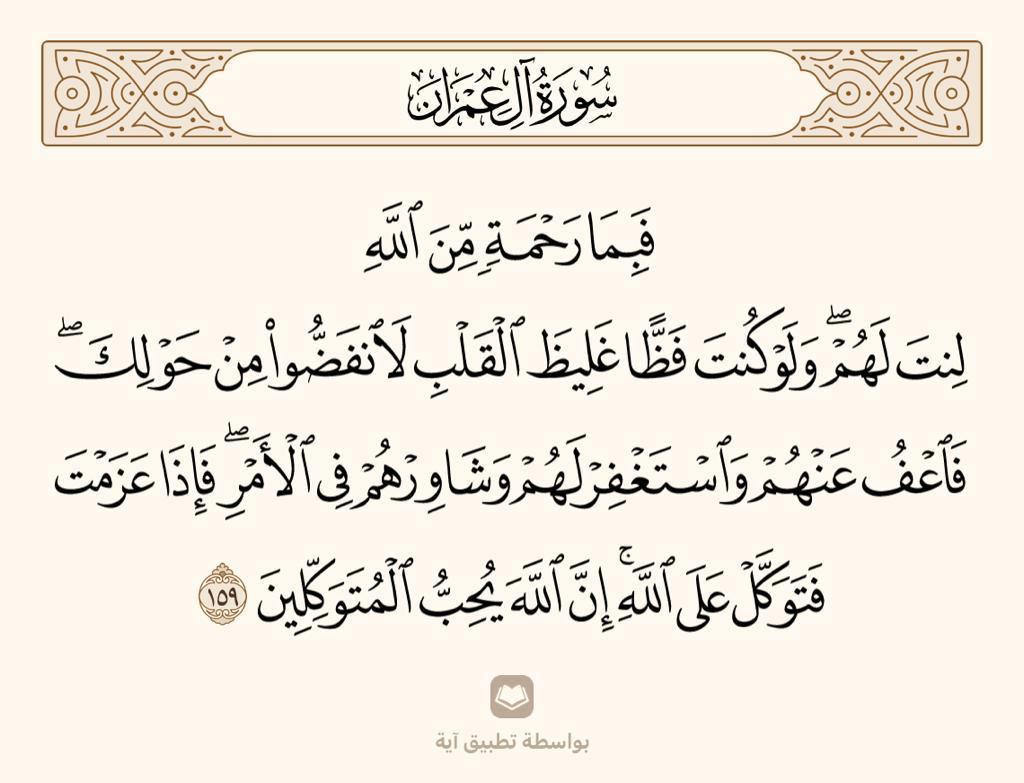 سُورَةُ آلِ عِمْرَانَ
فَبِمَا رَحْمَةٍ مِّنَ ٱللَّهِ
لِنتَ لَهُمْ ۖ وَلَوْ كُنتَ فَظًّا غَلِيظَ ٱلْقَلْبِ لَٱنفَضُّوا۟ مِنْ حَوْلِكَ ۖ
فَٱعْفُ عَنْهُمْ وَٱسْتَغْفِرْ لَهُمْ وَشَاوِرْهُمْ فِى ٱلْأَمْرِ ۖ فَإِذَا عَزَمْتَ
فَتَوَكَّلْ عَلَى ٱللَّهِ ۚ إِنَّ ٱللَّهَ يُحِبُّ ٱلْمُتَوَكِّلِينَ ١٥٩
بواسطة تطبيق آية